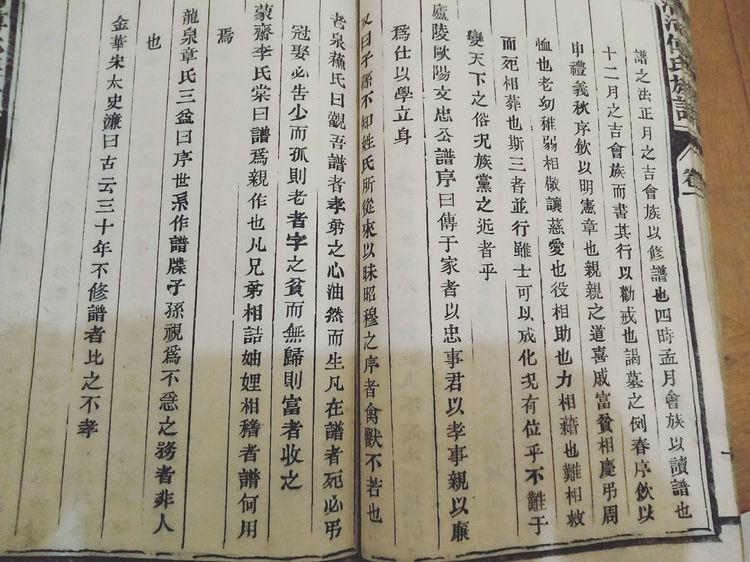 何氏族譜
卷
譜之法正月之吉會族以修譜也四時孟月會族以讀譜也
十二月之吉會族而書其行以勸戒也謁墓之例春序飲以
申禮義秋序飲以明憲章也親親之道喜戚富貧相慶弔周
恤也老幼稚弱相敬讓慈愛也役相助也力相藉也難相救
而死相葬也斯三者並行雖士可以成化況有位乎不難于
變天下之俗況族黨之近者乎
廬陵歐陽文忠公譜序曰傳于家者以忠事君以孝事親以廉
爲仕以學立身
又曰子孫不知姓氏所從來以昧昭穆之序者禽獸不若也
老泉蘓氏曰觀吾譜者孝弟之心油然而生凡在譜者死必弔
冠娶必告少而孤則老者字之貧而無歸則富者收之
蒙齋李氏棠曰譜爲親作也凡兄弟相詰妯娌相稽者譜何用
焉
龍泉章氏三益曰序世系作譜牒子孫視爲不急之務者非人
也
金華宋太史濂曰古云三十年不修譜者比之不孝